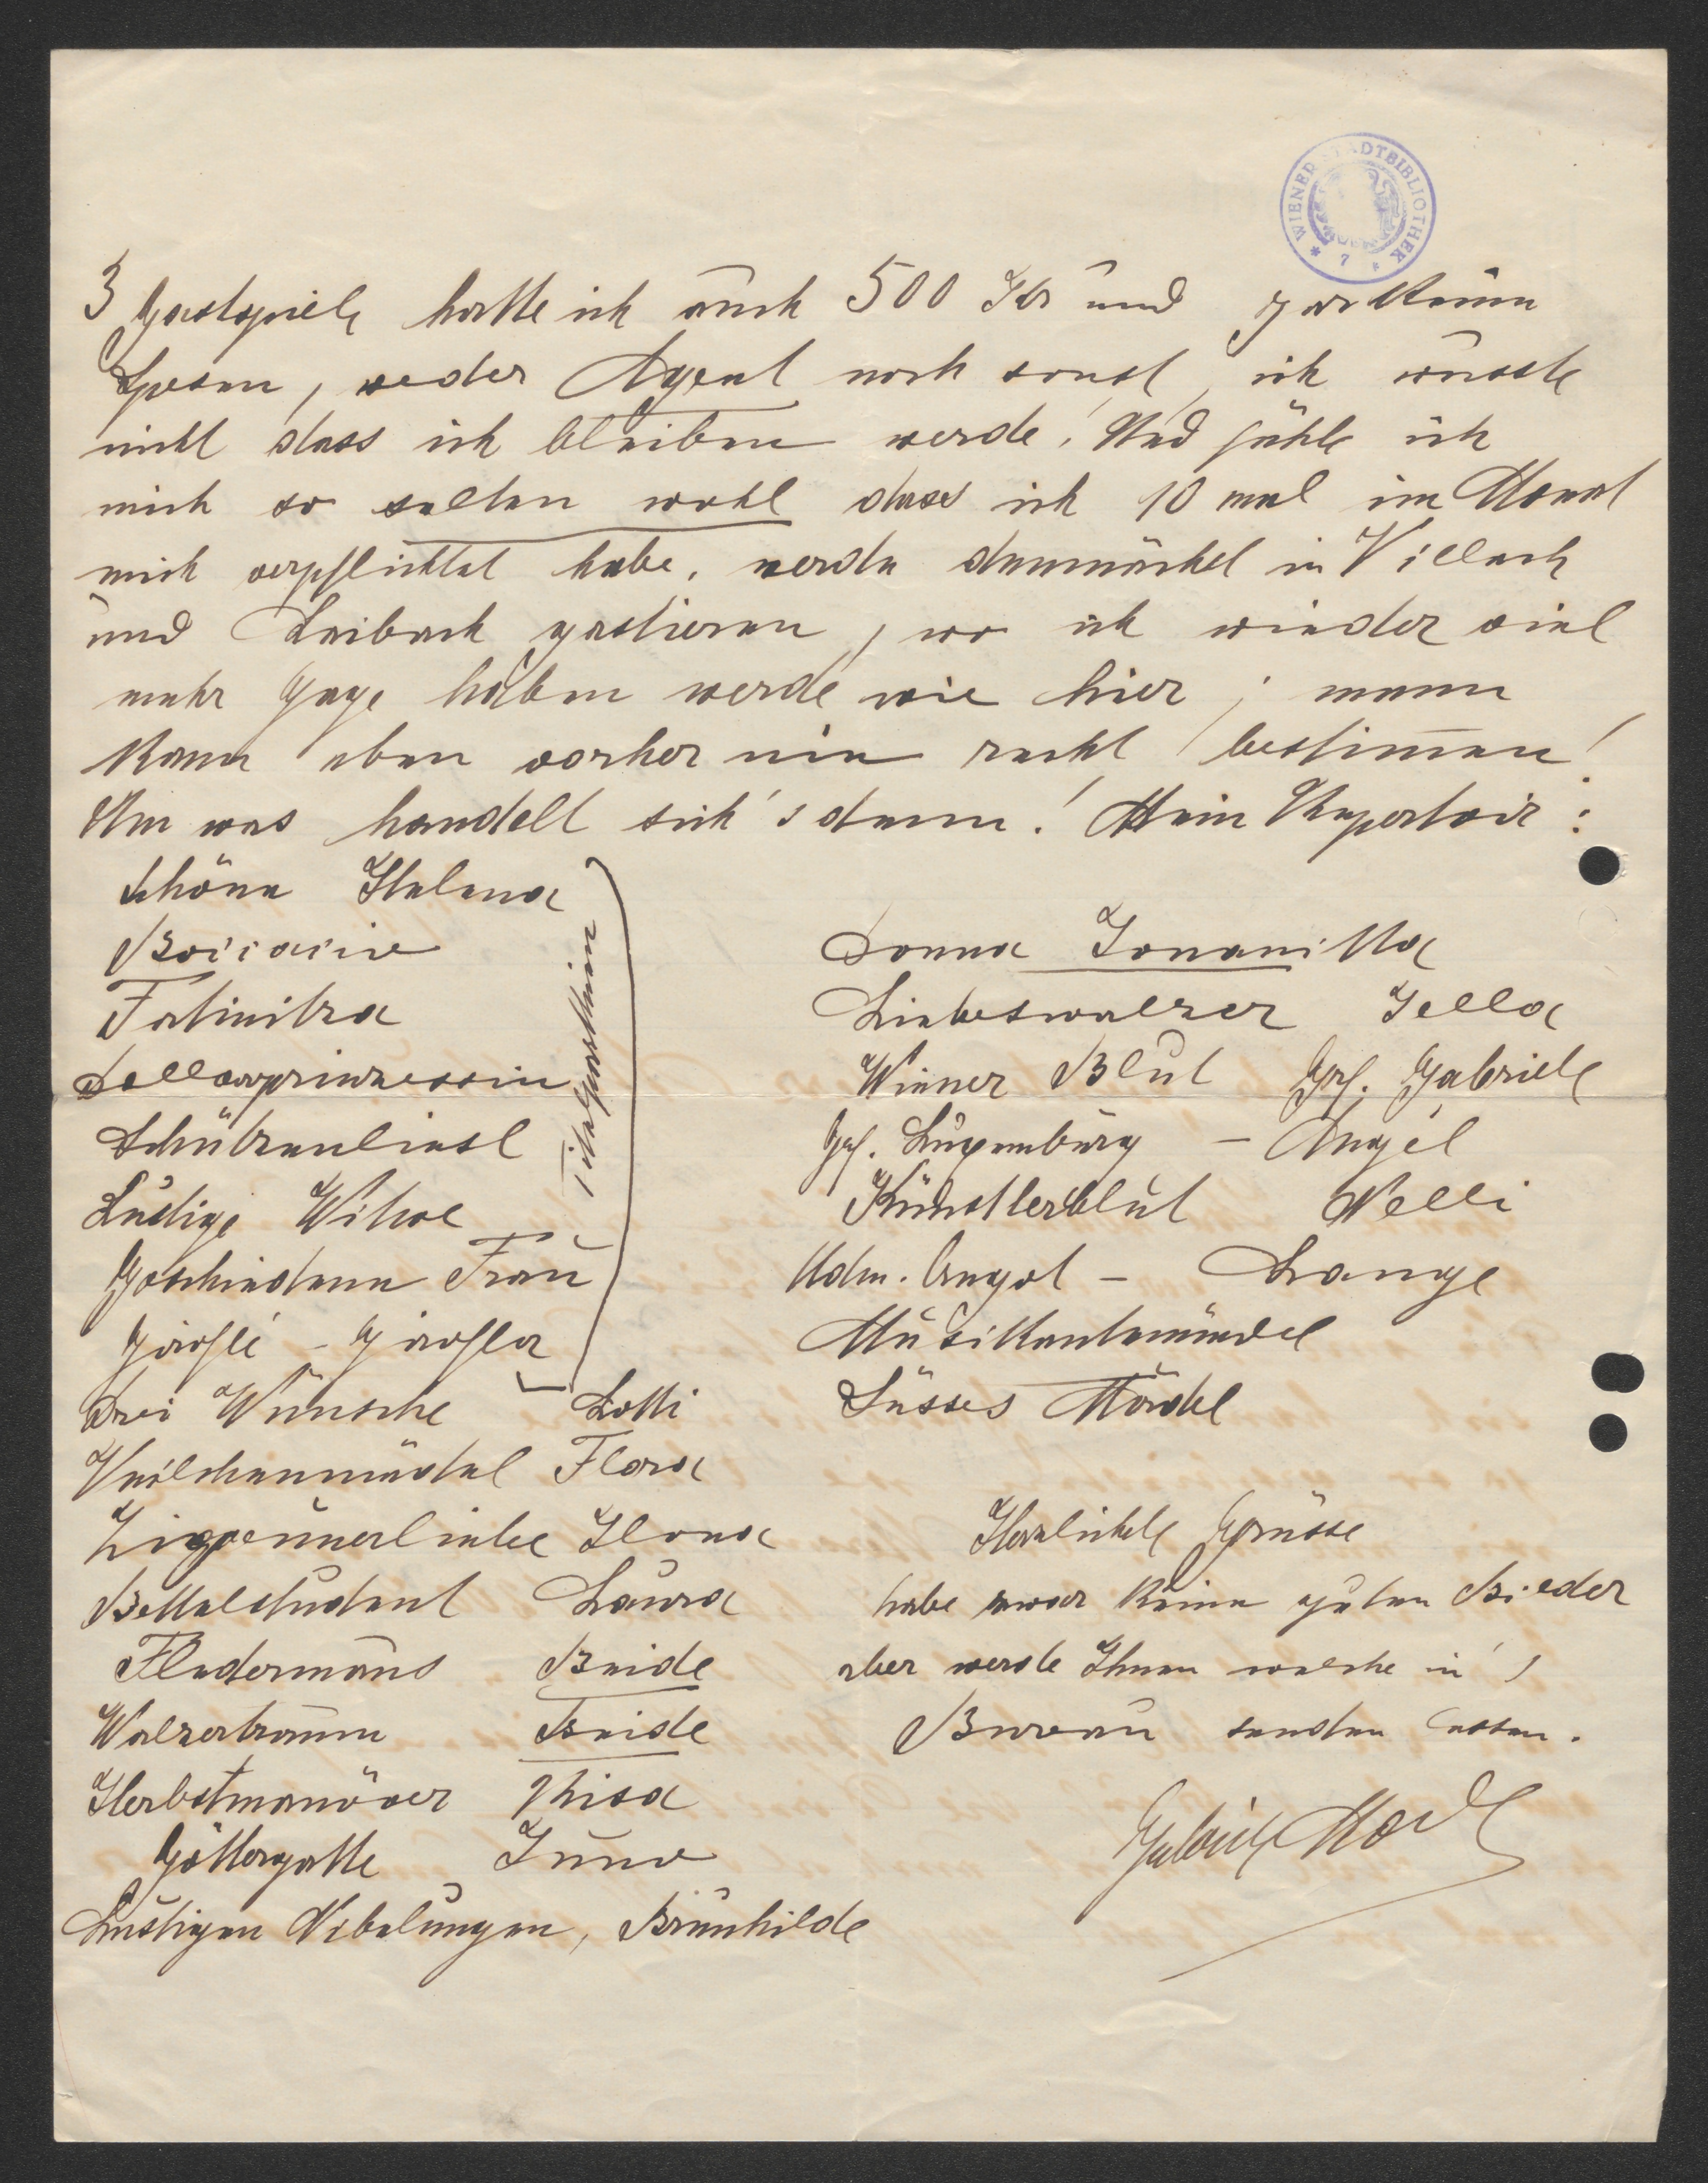 WIENER STADTBIBLIOTHEK
7
3 Gastspiele hatte ich auch 500 Kr und gar keine
Spesen, weder Agent noch sonst, ich wusste
nicht dass ich bleiben werde! Und fühle ich
mich so selten wohl dass ich 10 mal im Monat
mich verpflichtet habe, werde demnächst in Villach
und Laibach gastieren, wo ich wieder viel
mehr Gage haben werde wie hier; mann
kann eben vorher nie recht bestimmen!
Um was handelt sich's denn! Mein Repertoir:
Schöne Helena
Boccacio
Fatinitza
Dollarprinzessin
Schützenliesl
Lustige Witwe
Geschiedene Frau
Giroflé - Girofla
Titelparthien
Drei Wünsche Lotti
Veilchenmädel Flora
Zigeunerliebe Ilona
Bettelstudent Laura
Fledermaus Beide
Walzertraum Beide
Herbstmanöver Risa
Göttergatte Juno
Lustigen Nibelungen, Brünhilde
Donna Jouanitta
Liebeswalzer Jella
Wiener Blut Grf. Gabriele
Grf. Luxemburg - Angèl
Künstlerblut Nelli
Mdm. Angot - Lange
Musikantenmädel
Süsses Mädel
Herzlichste Grüsse
habe zwar keine guten Bilder
aber werde Ihnen welche in's
Bureau senden lassen.
Gabriele